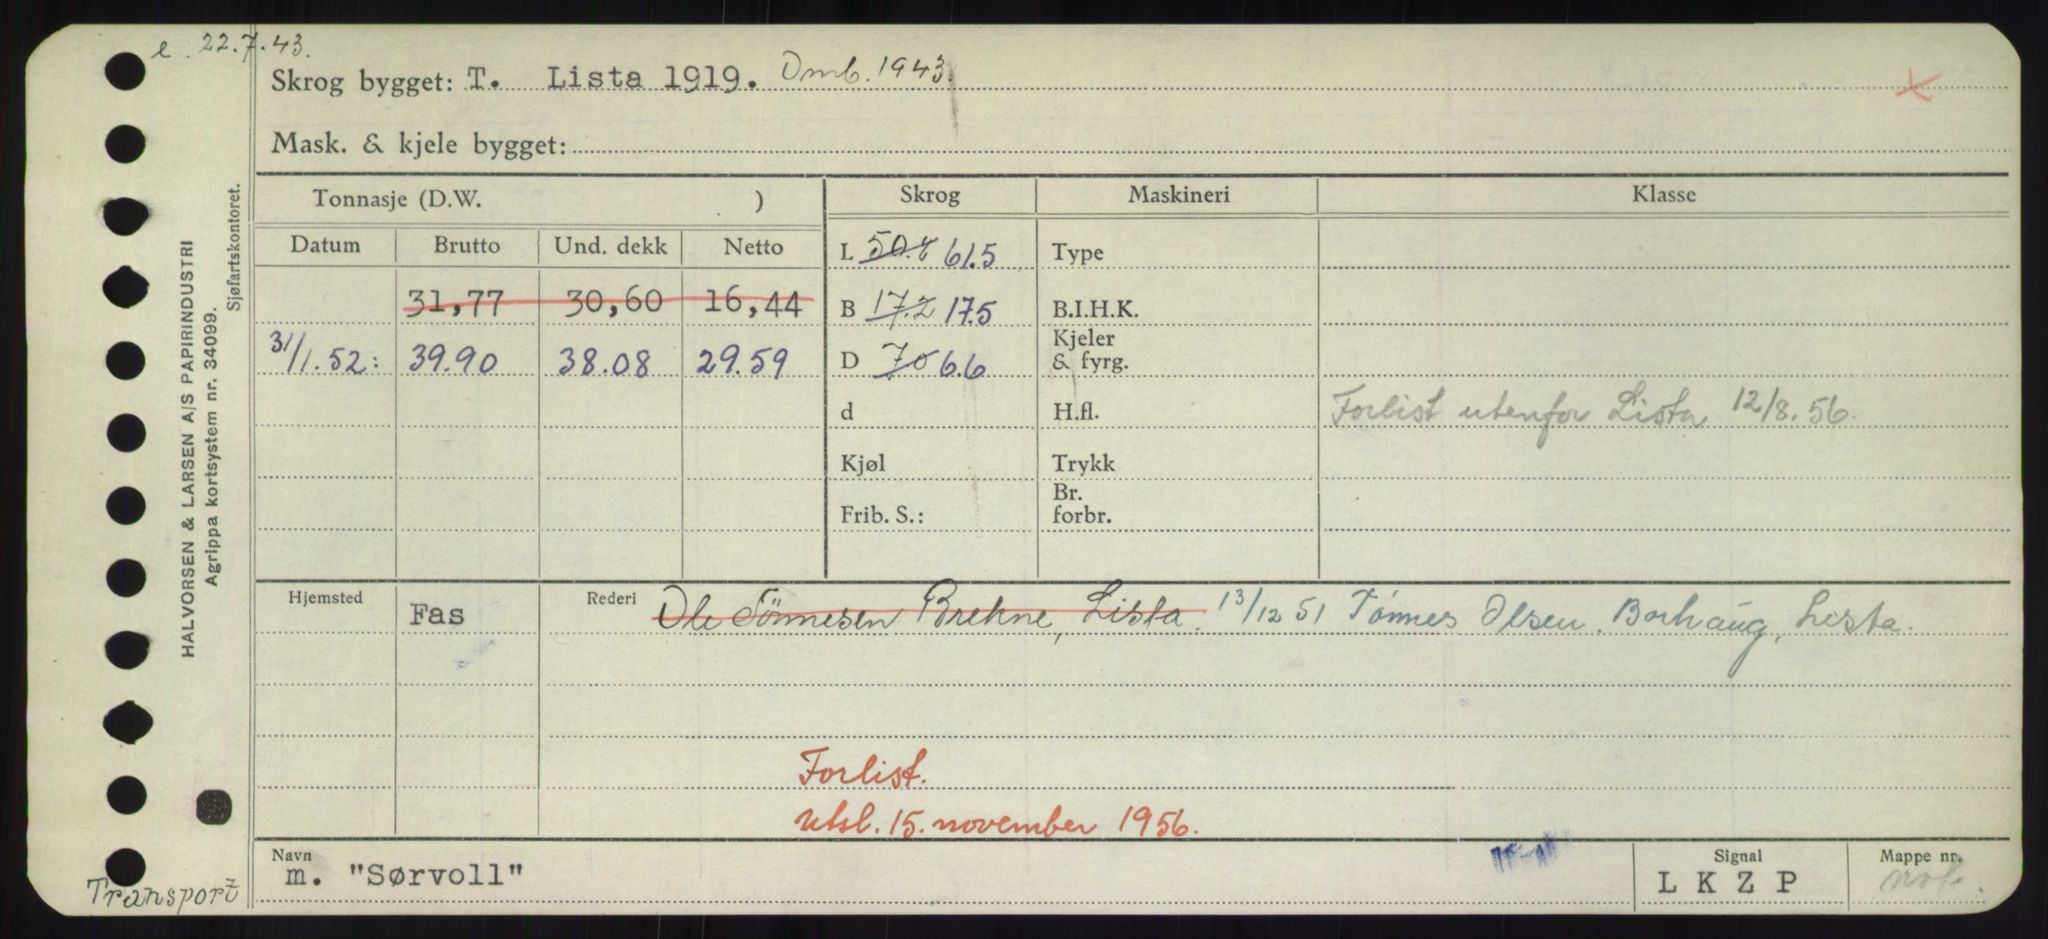 e. 22.7.43.
Skrog bygget: T. Lista 1919. Omb. 1943.
Mask. & kjele bygget:
HALVORSEN & LARSEN A/S PAPIRINDUSTRI
Agrippa kortsystem nr. 34099.
Sjøfartskontoret.
Tonnasje (D.W. ) Skrog Maskineri Klasse
Datum Brutto Und. dekk Netto
L 50.7 61.5 Type
31,77 30,60 16,44 B 17.2 17.5 B.I.H.K.
31/1.52: 39.90 38.08 29.59 D 7.0 6.6 Kjeler & fyrg.
d H.fl. Forlist utenfor Lista 12/8.56.
Kjøl Trykk
Frib. S.: Br. forbr.
Hjemsted Fas Rederi Ole Tönnesen Brekne, Lista. 13/12 51 Tónnes Olsen. Borhaug, Lista.
Forlist.
utsl. 15. november 1956.
Navn m. "Sørvoll" Signal L K Z P Mappe nr.
Transport